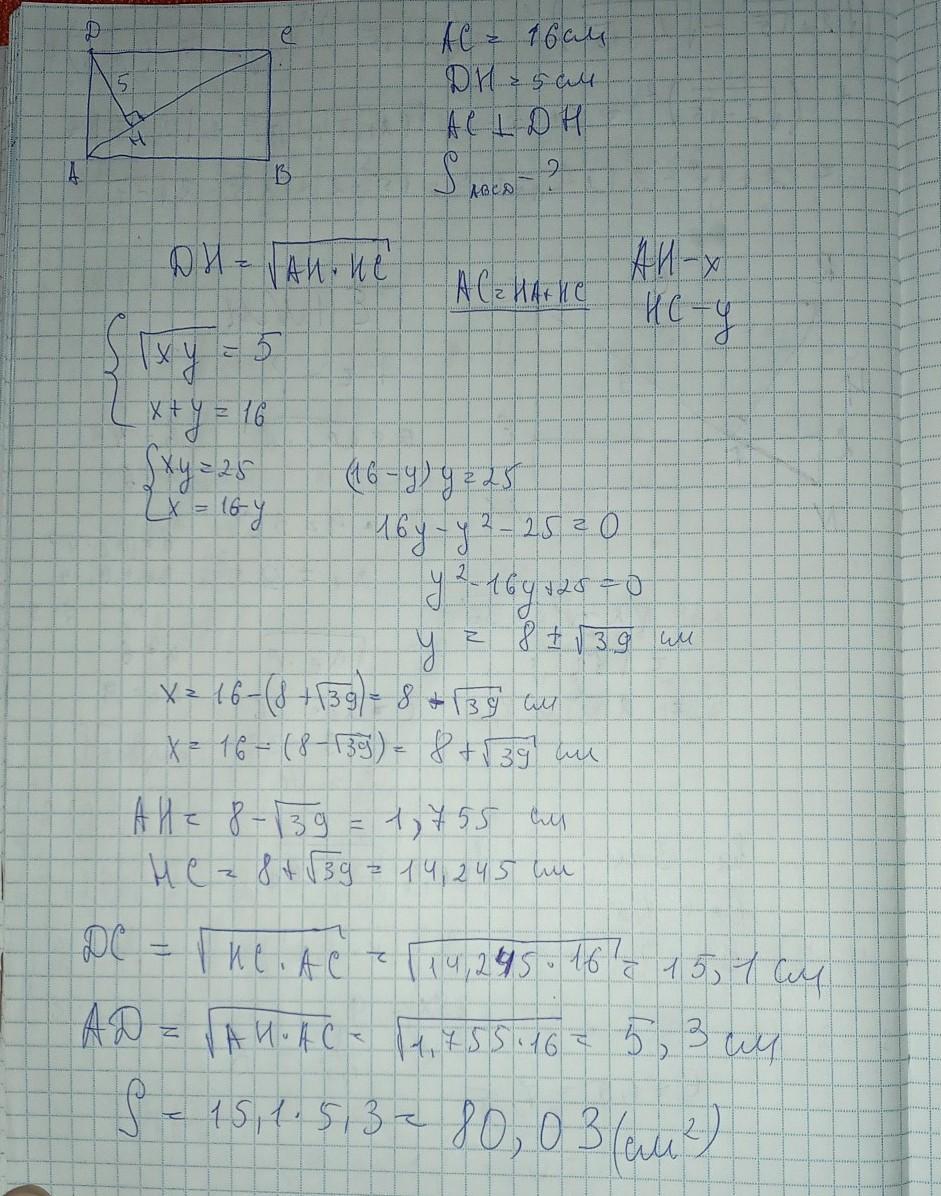 D C
5
H
A B
AC = 16 см
DH = 5 см
AC ⊥ DH
S ABCD - ?
DH = √AH · HC
AC = HA + HC
AH - x
HC - y
{ √xy = 5
x + y = 16
{ xy = 25
x = 16 - y
(16 - y) y = 25
16y - y² - 25 = 0
y² - 16y + 25 = 0
y = 8 ± √39 см
x = 16 - (8 + √39) = 8 - √39 см
x = 16 - (8 - √39) = 8 + √39 см
AH = 8 - √39 = 1,755 см
HC = 8 + √39 = 14,245 см
DC = √HC · AC = √14,245 · 16 = 15,1 см
AD = √AH · AC = √1,755 · 16 = 5,3 см
S = 15,1 · 5,3 = 80,03 (см²)